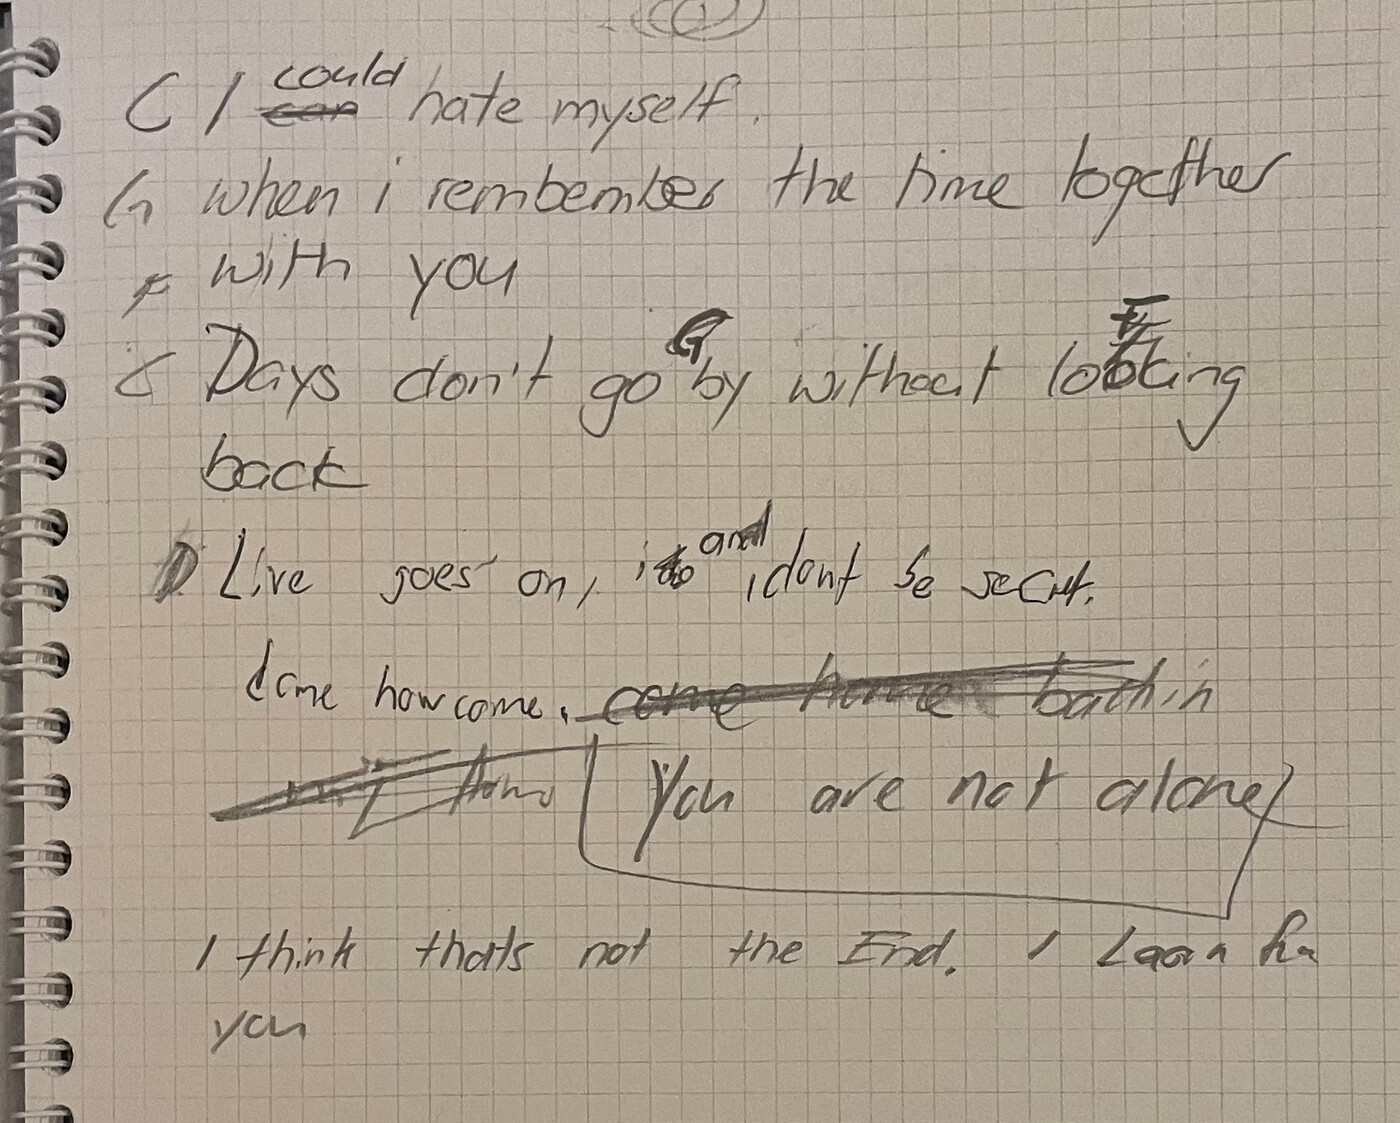 could
C I can hate myself.
G when i rembember the time together
F with you
G F
C Days don't go by without looking
back
and
D Live goes on, i dont be secret.
how come. come home back in
You are not alone
I think thats not the End. I
you